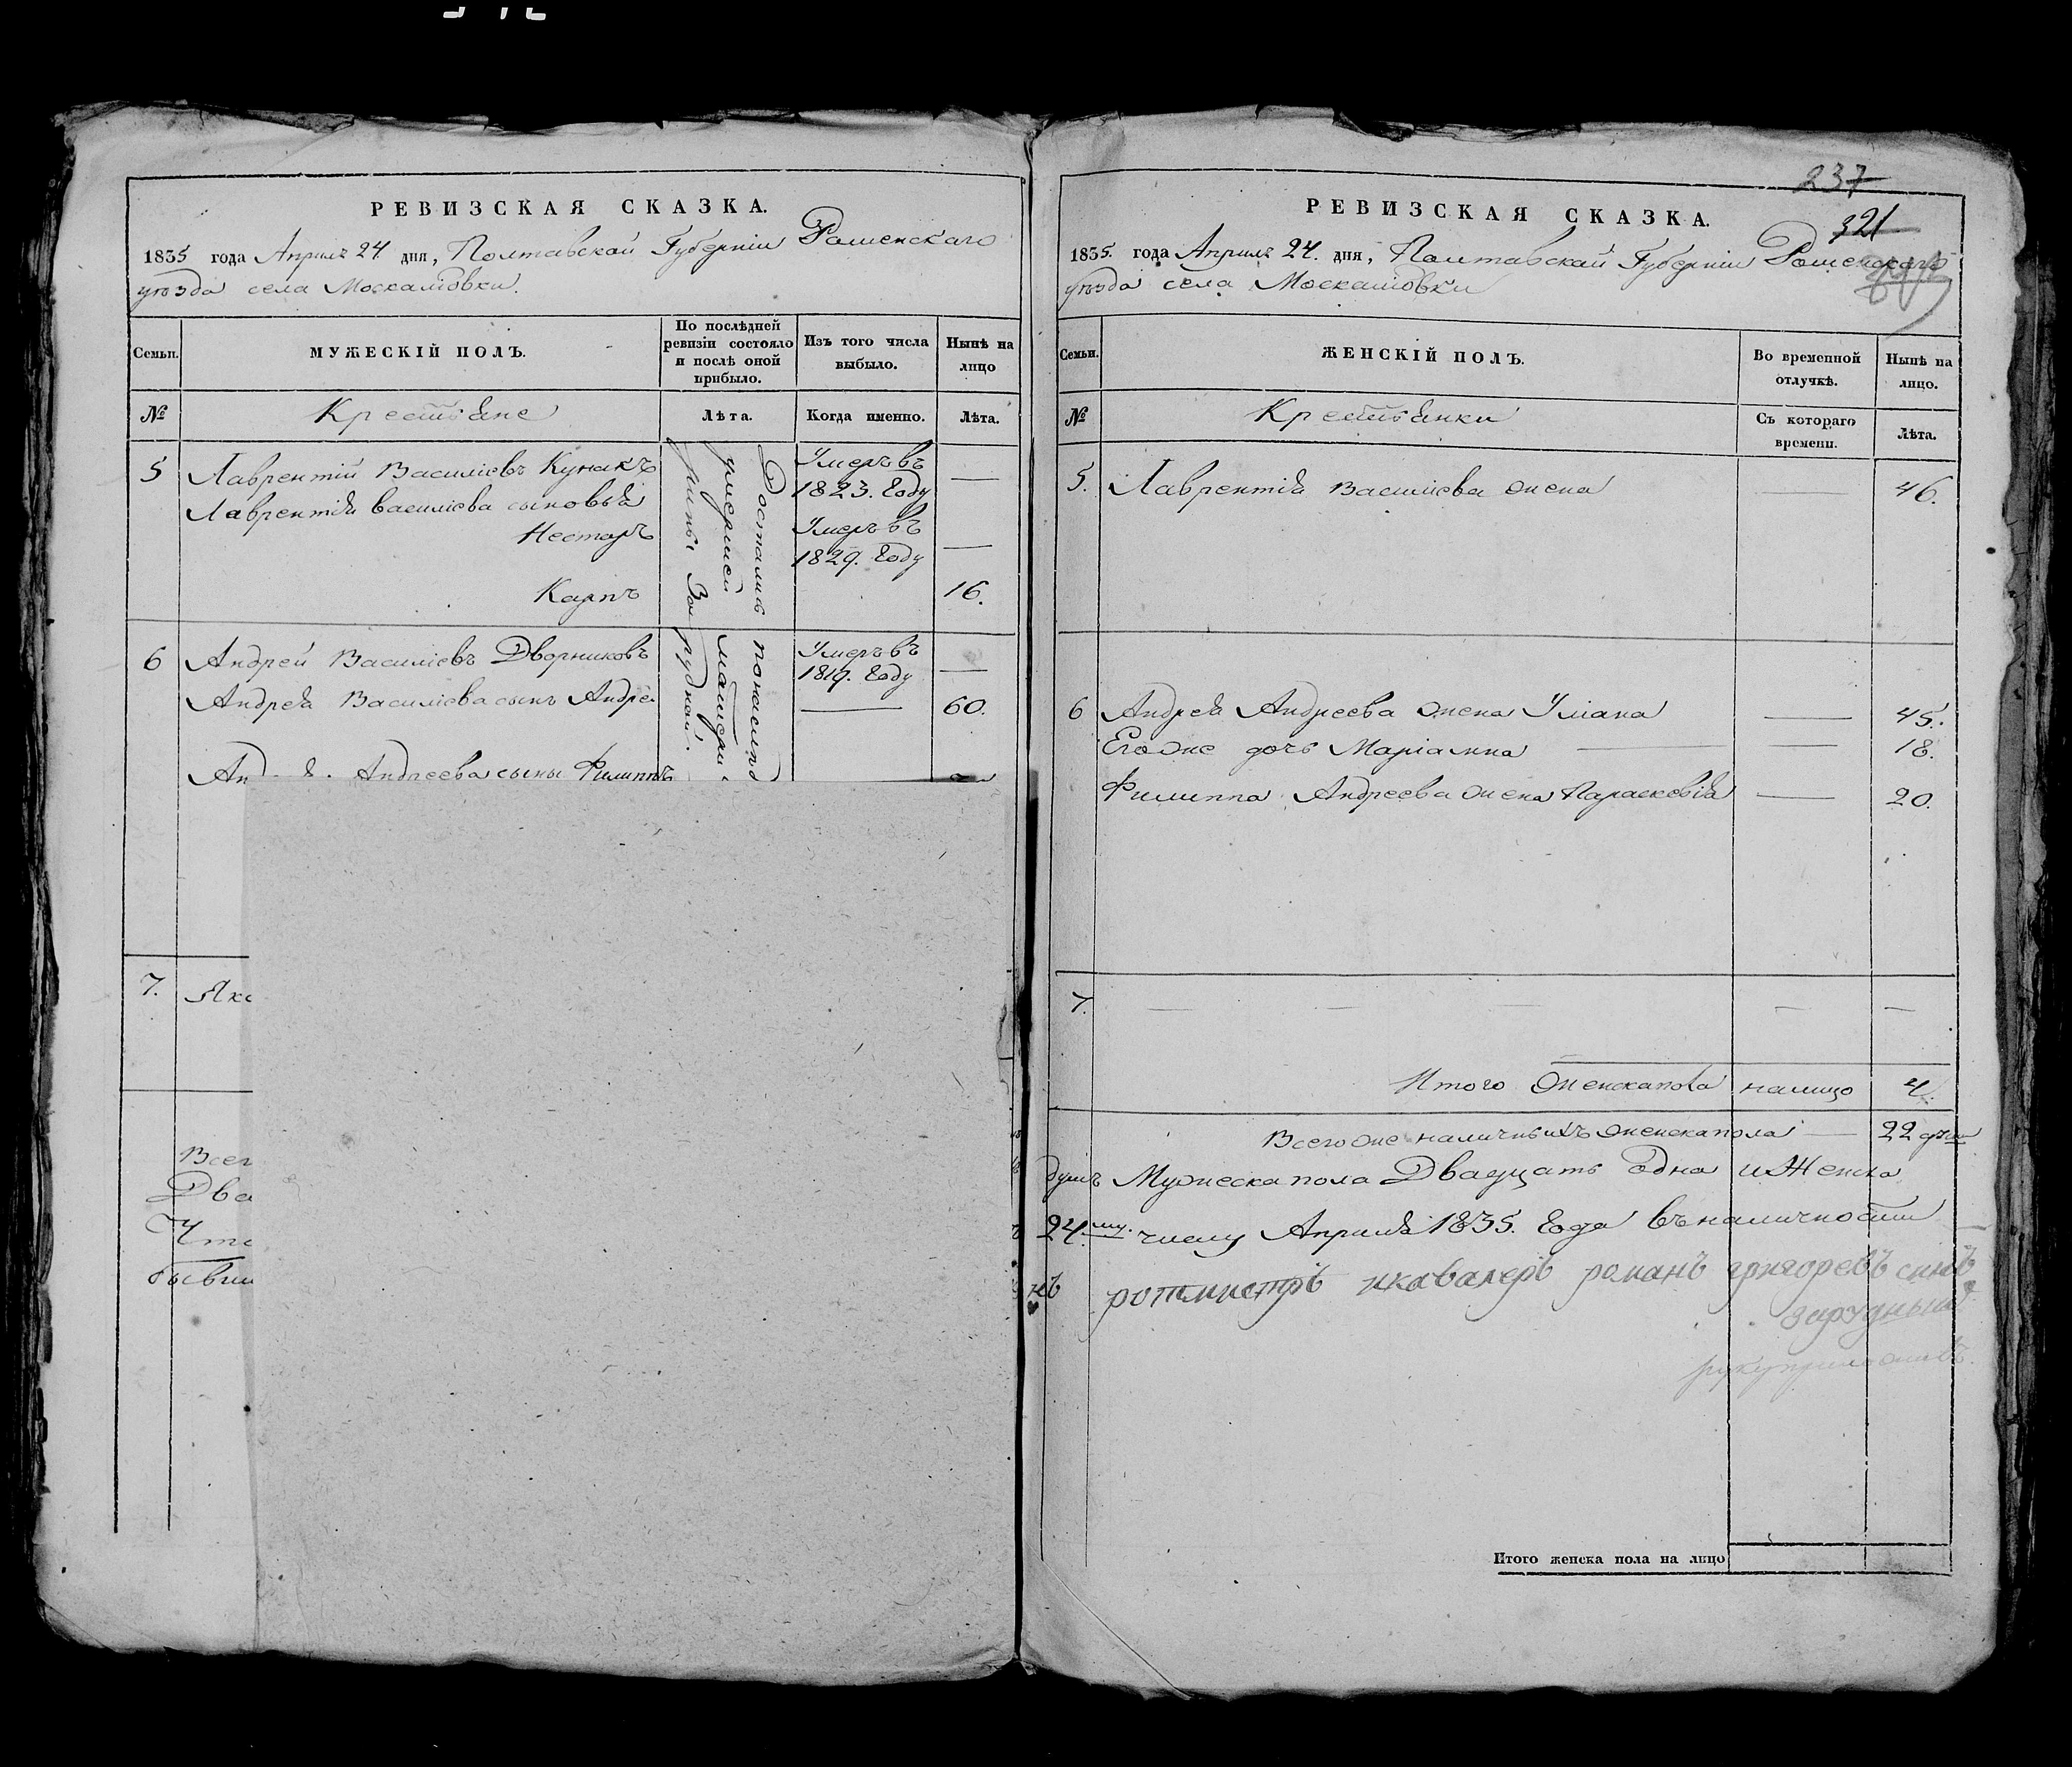 РЕВИЗСКАЯ СКАЗКА.
1835 года Апрѣля 24 дня, Полтавской Губерніи Роменскаго
уѣзда села Москалювки.
Семьи.
МУЖЕСКІЙ ПОЛЪ.
По послѣдней
ревизіи состояло
и послѣ оной
прибыло.
Изъ того числа
выбыло.
Нынѣ на
лицо
№
Крестьяне
Лѣта.
Когда именно.
Лѣта.
5 Лаврентій Василіевъ Кунакъ
Умеръ въ
1823. Году
Лаврентія василіева сыновья
Несторъ
Умеръ въ
1829. Году
Карпъ
16.
Достались по наслѣд
умершей матери
6 Андрей Василіевъ Дворниковъ
Умеръ въ
1819. Году
Андрея Василіева сынъ Андре
60.
Анд Андреева сыны Филиппъ
7. Яко
Всег
Два
Что
бывши
237
321
РЕВИЗСКАЯ СКАЗКА.
1835. года Апрѣля 24. дня, Полтавской Губерніи Роменскаго
уѣзда села Москалювки
Семьи.
ЖЕНСКІЙ ПОЛЪ.
Во временной
отлучкѣ.
Нынѣ на
лицо.
№
Крестьянки
Съ котораго
времени.
Лѣта.
5. Лаврентія Василіева жена 46.
6 Андрея Андреева жена Уліана 45.
Его же дочь Маріамна 18.
Филиппа Андреева жена Параскевія 20.
7.
Итого женска пола налицо 4.
Всего же наличныхъ женска пола 22 души
душъ Мужеска пола Двадцать одна и Женска
24му. числу Апрѣля 1835. Года въ наличности
нъ ротмистръ и кавалеръ романъ григоревъ синъ
зарудный
руку приложилъ.
Итого женска пола на лицо